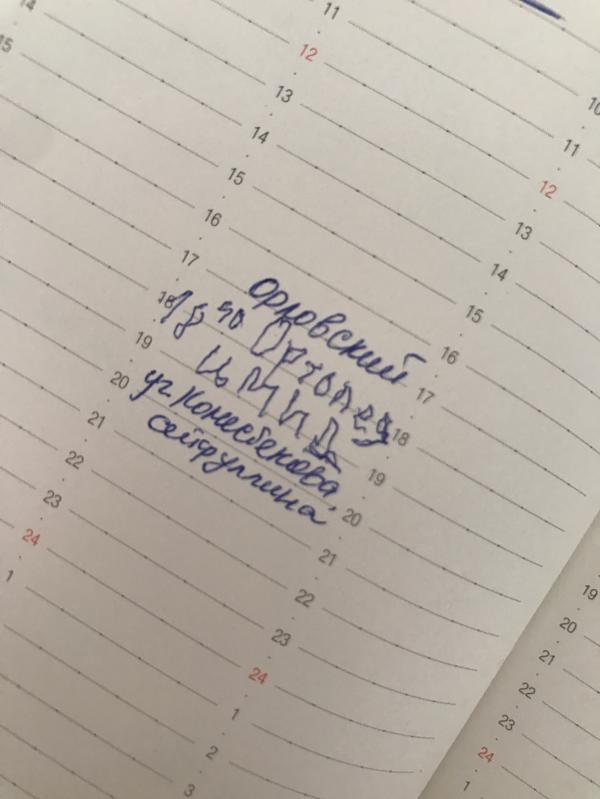 14
15
17
18
19
20
21
22
23
24
1
11
12
13
14
15
16
17
18
19
20
21
22
23
24
1
2
3
10
11
12
13
14
15
16
19
20
21
22
23
24
1
Орловский
18 50 Ортопед
ЦМИД
уг. Конесбекова,
сейфуллина